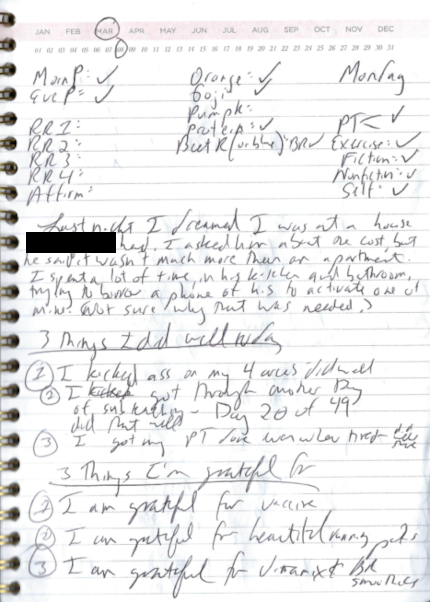 JAN FEB MAR APR MAY JUN JUL AUG SEP OCT NOV DEC
01 02 03 04 05 06 07 08 09 10 11 12 13 14 15 16 17 18 19 20 21 22 23 24 25 26 27 28 29 30 31
MornP: ✓ Orange: ✓ Monday
EveP: ✓ Goji: ✓
Pumpk:
RR1: Protein: ✓ PT ✓
RR2: Beet R : BR ✓ Exercise: ✓
RR3: Fiction: ✓
RR4: Nonfiction: ✓
Affirm: Self: ✓
Last night I dreamed I was at a house
had. I asked him about the cost, but
he said it wasn't much more than an apartment.
I spent a lot of time in his kitchen and bathroom,
trying to borrow a phone of his to activate one of
mine. (Not sure why that was needed.)
3 Things I did well today
① I kicked ass on my 4
② I got through another Day
of - Day 20 of 49
did that well
③ I got my PT done even when tired -
3 Things I'm grateful for
① I am grateful for vaccine
② I am grateful for beautiful
③ I am grateful for & BR
smoothies